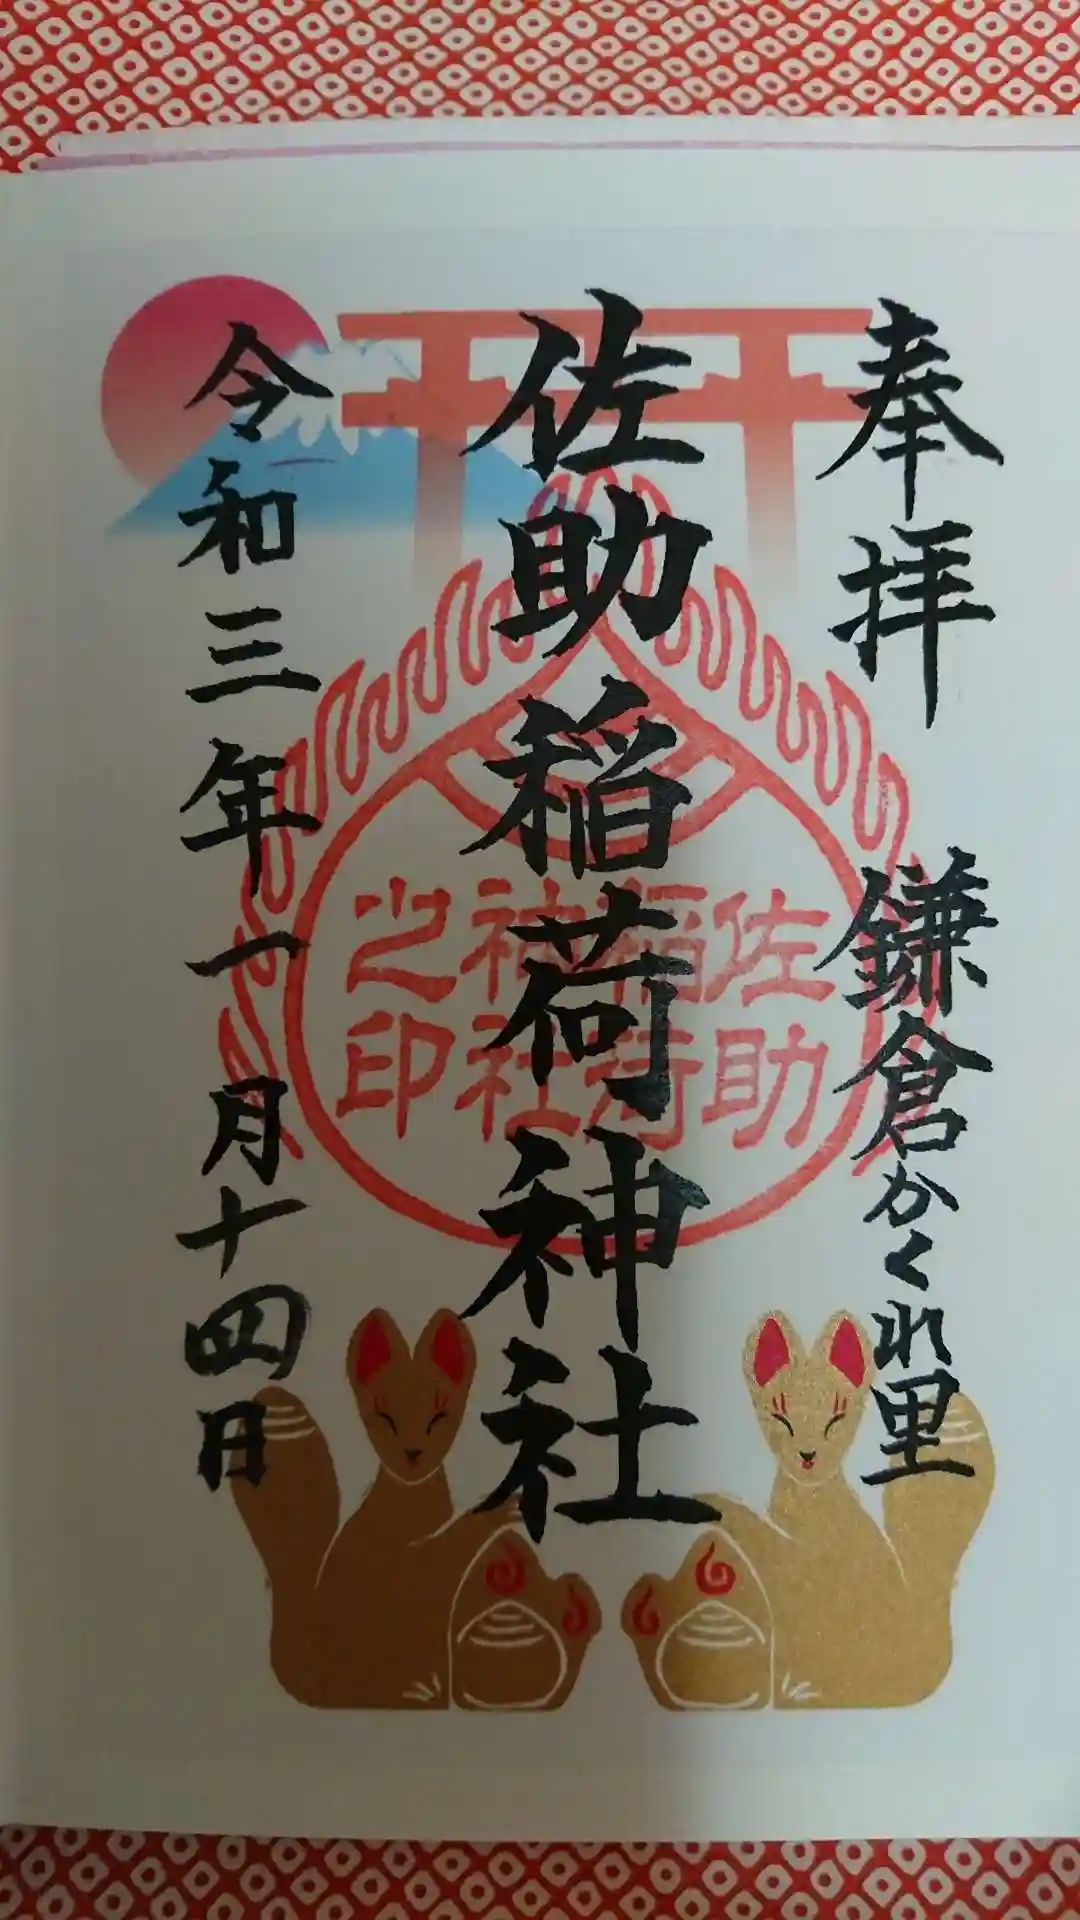 奉拝 鎌倉かくれ里
佐助稲荷神社
令和三年一月十四日
佐助
稲荷
神社
之印